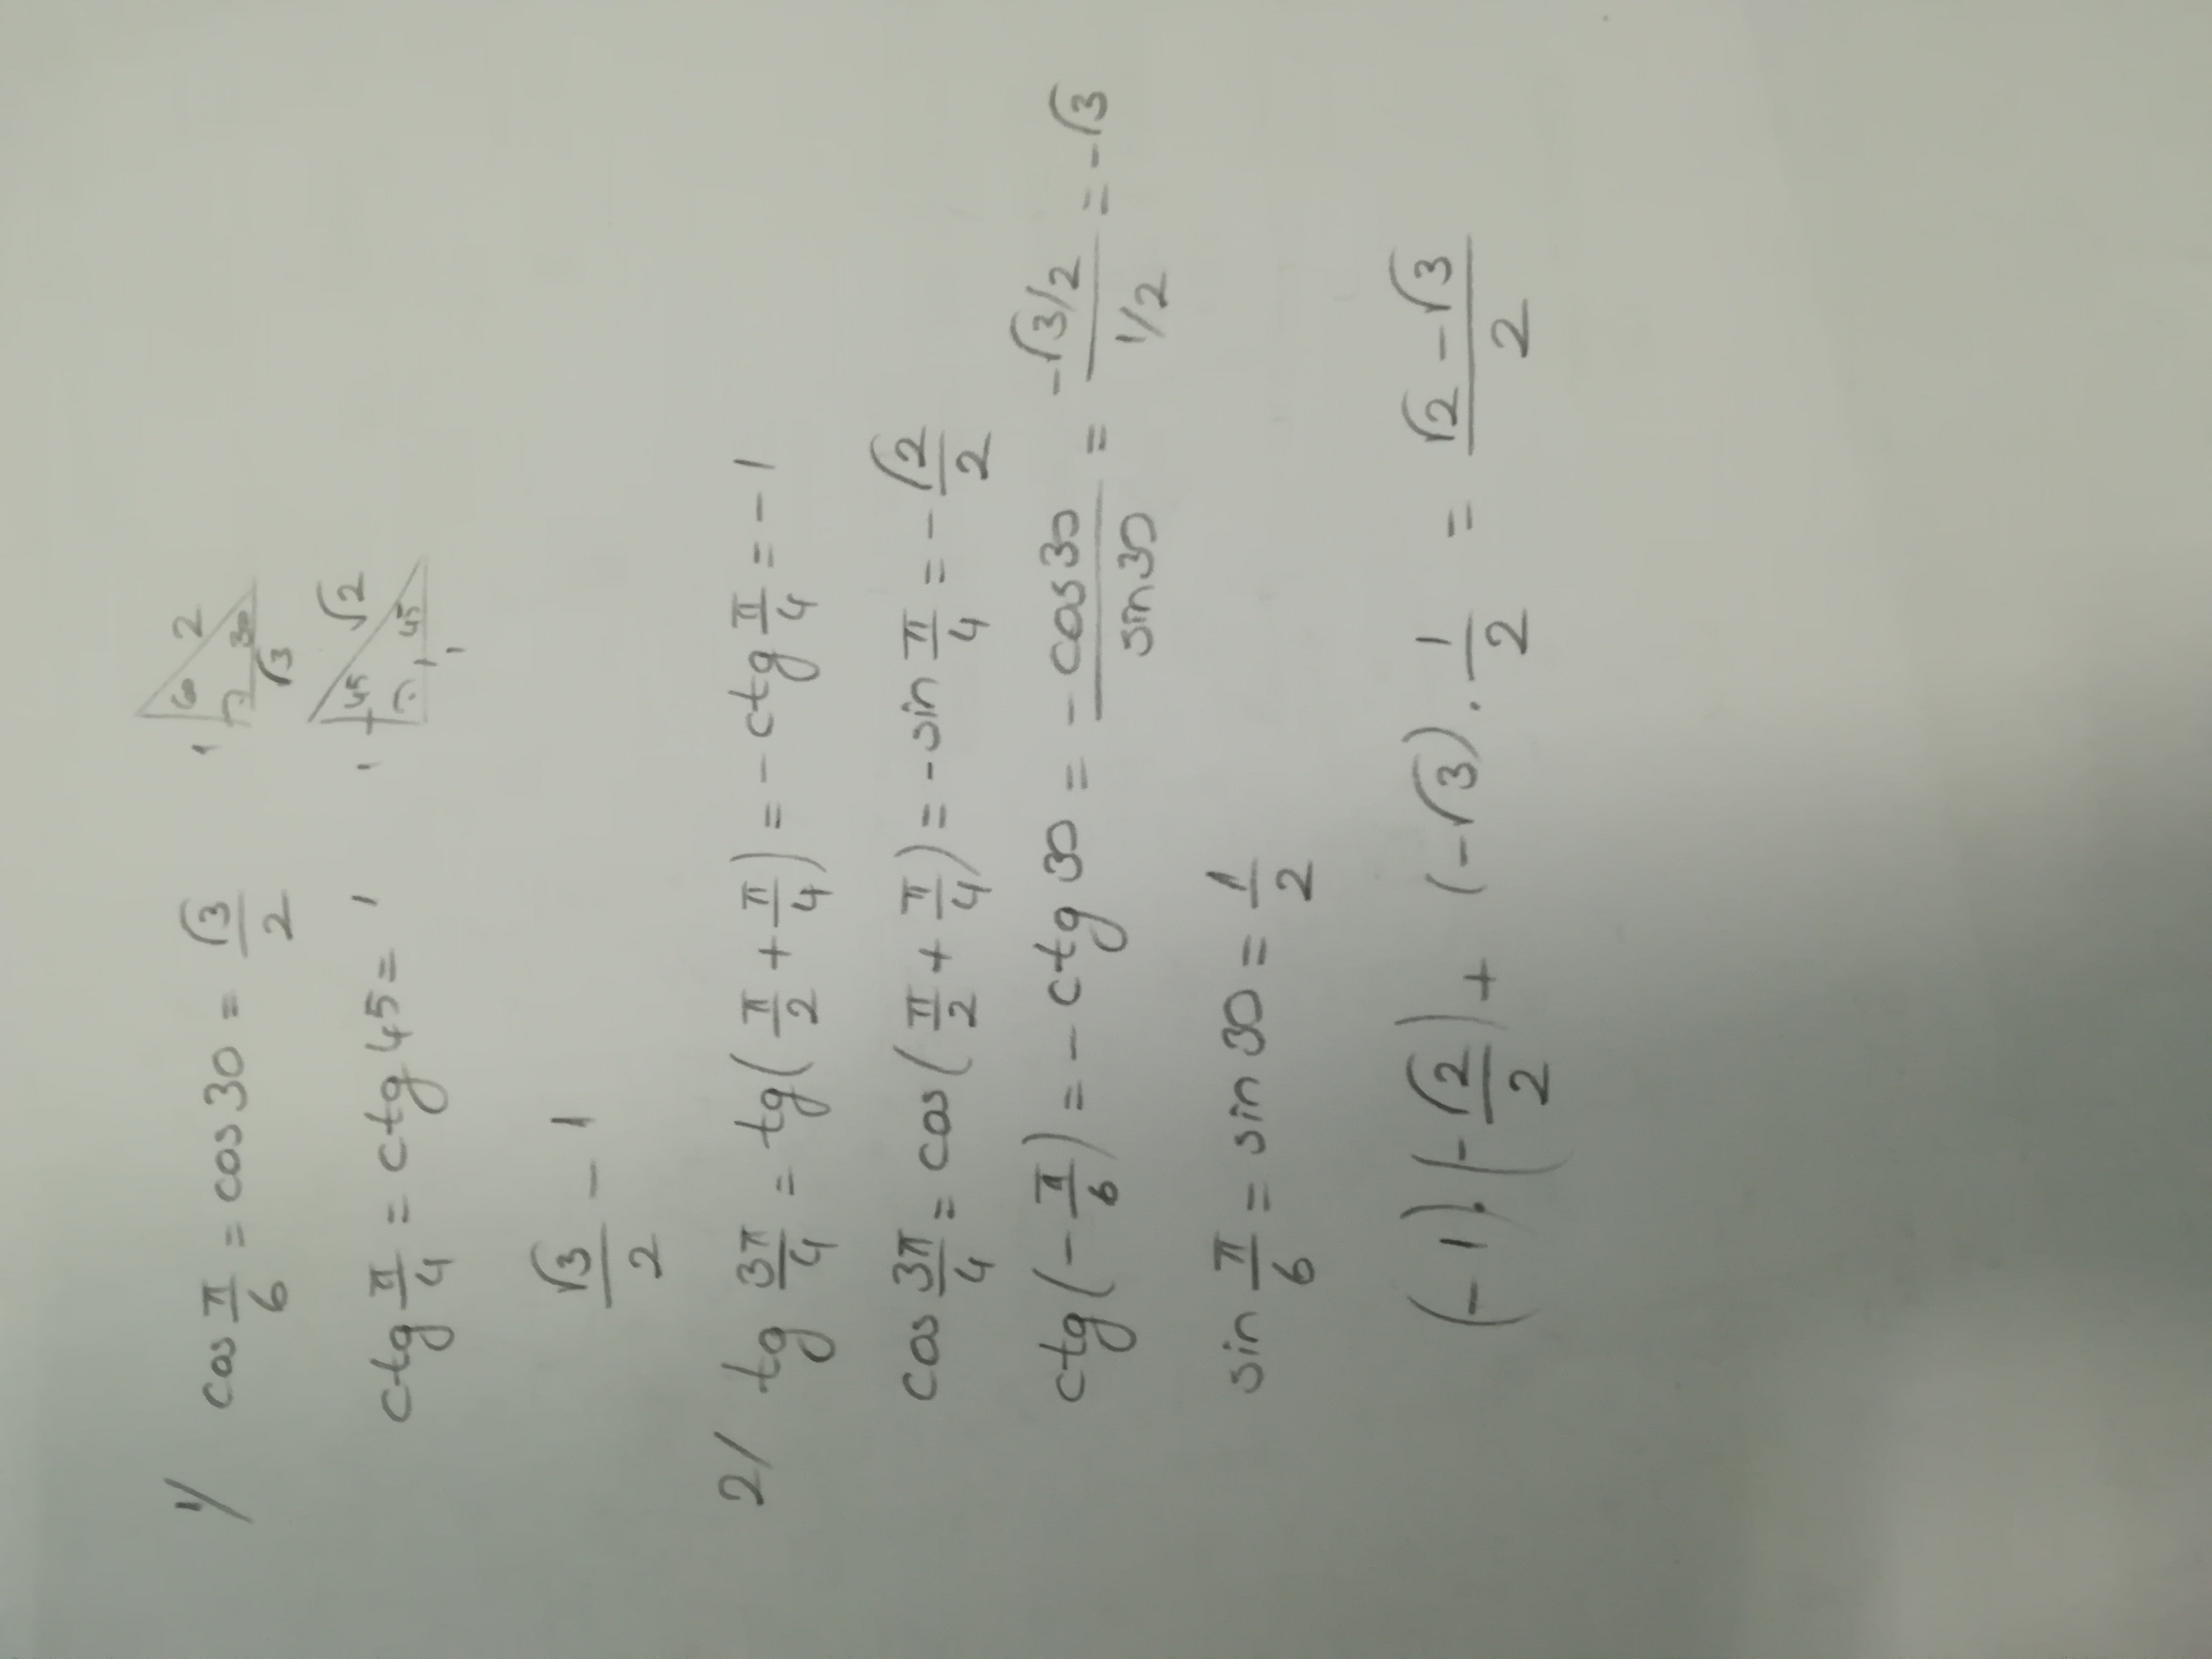 1/ cos π/6 = cos 30 = √3/2
1 60 2 30 √3
ctg π/4 = ctg 45 = 1
1 45 √2 45 1
√3/2 - 1
2/ tg 3π/4 = tg(π/2 + π/4) = - ctg π/4 = - 1
cos 3π/4 = cos(π/2 + π/4) = - sin π/4 = - √2/2
ctg(- π/6) = - ctg 30 = - cos 30/sin 30 = -√3/2 / 1/2 = - √3
sin π/6 = sin 30 = 1/2
(- 1).(- √2/2) + (-√3) . 1/2 = √2 - √3 / 2